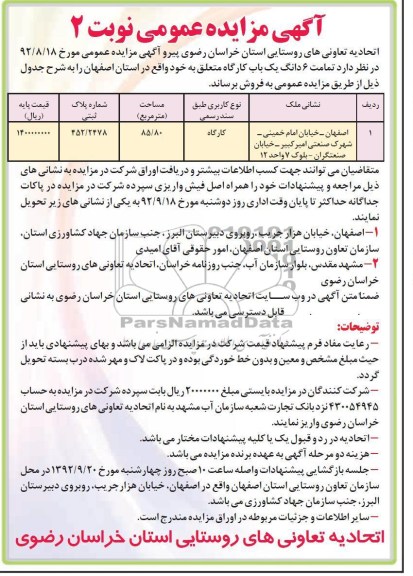 آگهی مزایده عمومی نوبت ۲
اتحادیه تعاونی های روستایی استان خراسان رضوی پیرو آگهی مزایده عمومی مورخ ۹۲/۸/۱۸
در نظر دارد تمامت ۶ دانگ یک باب کارگاه متعلق به خود واقع در استان اصفهان را به شرح جدول
ذیل از طریق مزایده عمومی به فروش برساند.
ردیف نشانی ملک نوع کاربری طبق سند رسمی مساحت (مترمربع) شماره پلاک ثبتی قیمت پایه (ریال)
۱ اصفهان ـ خیابان امام خمینی ـ شهرک صنعتی امیرکبیر ـ خیابان صنعتگران - بلوک ۷ واحد ۱۲ کارگاه ۸۵/۸۰ ۴۵۲/۲۴۷۸ ۱۴۰۰۰۰۰۰۰۰
متقاضیان می توانند جهت کسب اطلاعات بیشتر و دریافت اوراق شرکت در مزایده به نشانی های
ذیل مراجعه و پیشنهادات خود را همراه اصل فیش واریزی سپرده شرکت در مزایده در پاکات
جداگانه حداکثر تا پایان وقت اداری روز دوشنبه مورخ ۹۲/۹/۱۸ به یکی از نشانی های زیر تحویل
نمایند.
۱- اصفهان، خیابان هزار جریب، روبروی دبیرستان البرز، جنب سازمان جهاد کشاورزی استان،
سازمان تعاون روستایی استان اصفهان، امور حقوقی آقای امیدی
۲- مشهد مقدس، بلوار سازمان آب، جنب روزنامه خراسان، اتحادیه تعاونی های روستایی استان
خراسان رضوی
ضمنا متن آگهی در وب سایت اتحادیه تعاونی های روستایی استان خراسان رضوی به نشانی
قابل دسترسی می باشد.
ParsNamadData
توضیحات:
- رعایت مفاد فرم پیشنهاد قیمت شرکت در مزایده الزامی می باشد و بهای پیشنهادی باید از
حیث مبلغ مشخص و معین و بدون خط خوردگی بوده و در پاکت لاک و مهر شده درب بسته تحویل
گردد.
- شرکت کنندگان در مزایده بایستی مبلغ ۲۰۰۰۰۰۰۰ ریال بابت سپرده شرکت در مزایده به حساب
۴۳۰۰۵۴۹۴۵ نزد بانک تجارت شعبه سازمان آب مشهد به نام اتحادیه تعاونی های روستایی استان
خراسان رضوی واریز نمایند.
- اتحادیه در رد و قبول یک یا کلیه پیشنهادات مختار می باشد.
- هزینه دو مرحله آگهی به عهده برنده مزایده می باشد.
- جلسه بازگشایی پیشنهادات واصله ساعت ۱۰ صبح روز چهارشنبه مورخ ۱۳۹۲/۹/۲۰ در محل
سازمان تعاون روستایی استان اصفهان واقع در اصفهان، خیابان هزار جریب، روبروی دبیرستان
البرز، جنب سازمان جهاد کشاورزی می باشد.
- سایر اطلاعات و جزئیات مربوطه در اوراق مزایده مندرج است.
اتحادیه تعاونی های روستایی استان خراسان رضوی